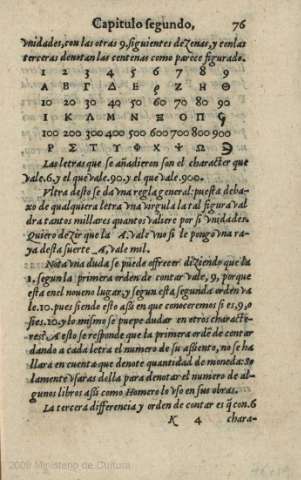 Capitulo segundo, 76
vnidades, con las otras 9, siguientes dezenas, y con las
terceras denotan las centenas como parece figurado.
1 2 3 4 5 6 7 8 9
Α Β Γ Δ Ε Ϛ Ζ Η Θ
10 20 30 40 50 60 70 80 90
Ι Κ Λ Μ Ν Ξ Ο Π
100 200 300 400 500 600 700 800 900
Ρ Σ Τ Υ Φ Χ Ψ Ω
Las letras que se añadieron son el character que
vale. 6. y el que vale. 90. y el que vale. 900.
Vltra desto se da vna regla general: puesta deba-
xo de qualquiera letra vna virgula la tal figura val
dra tantos millares quantos valiere por si vnidades.
Quiero dezir que la Α, vale vno si le pongo vna ra-
ya desta suerte Α, vale mil.
Nota vna duda se puede offrecer diziendo que la
I, segun la primera orden de contar vale, 9, porque
esta en el noueno lugar, y segun esta segunda orden va
le. 10. pues siendo esto assi en que conoceremos si es, 9, o
si es. 10. y lo mismo se puede dudar en otros characte-
res? A esto se responde que la primera ordē de contar
dando a cada letra el numero de su assiento, no se ha
llara en cuenta que denote quantidad de moneda: So
lamente vsaras della para denotar el numero de al-
gunos libros assi como Homero lo vso en sus obras.
La tercera differencia y orden de contar es q̄ con. 6
K 4 chara-
2009 Ministerio de Cultura